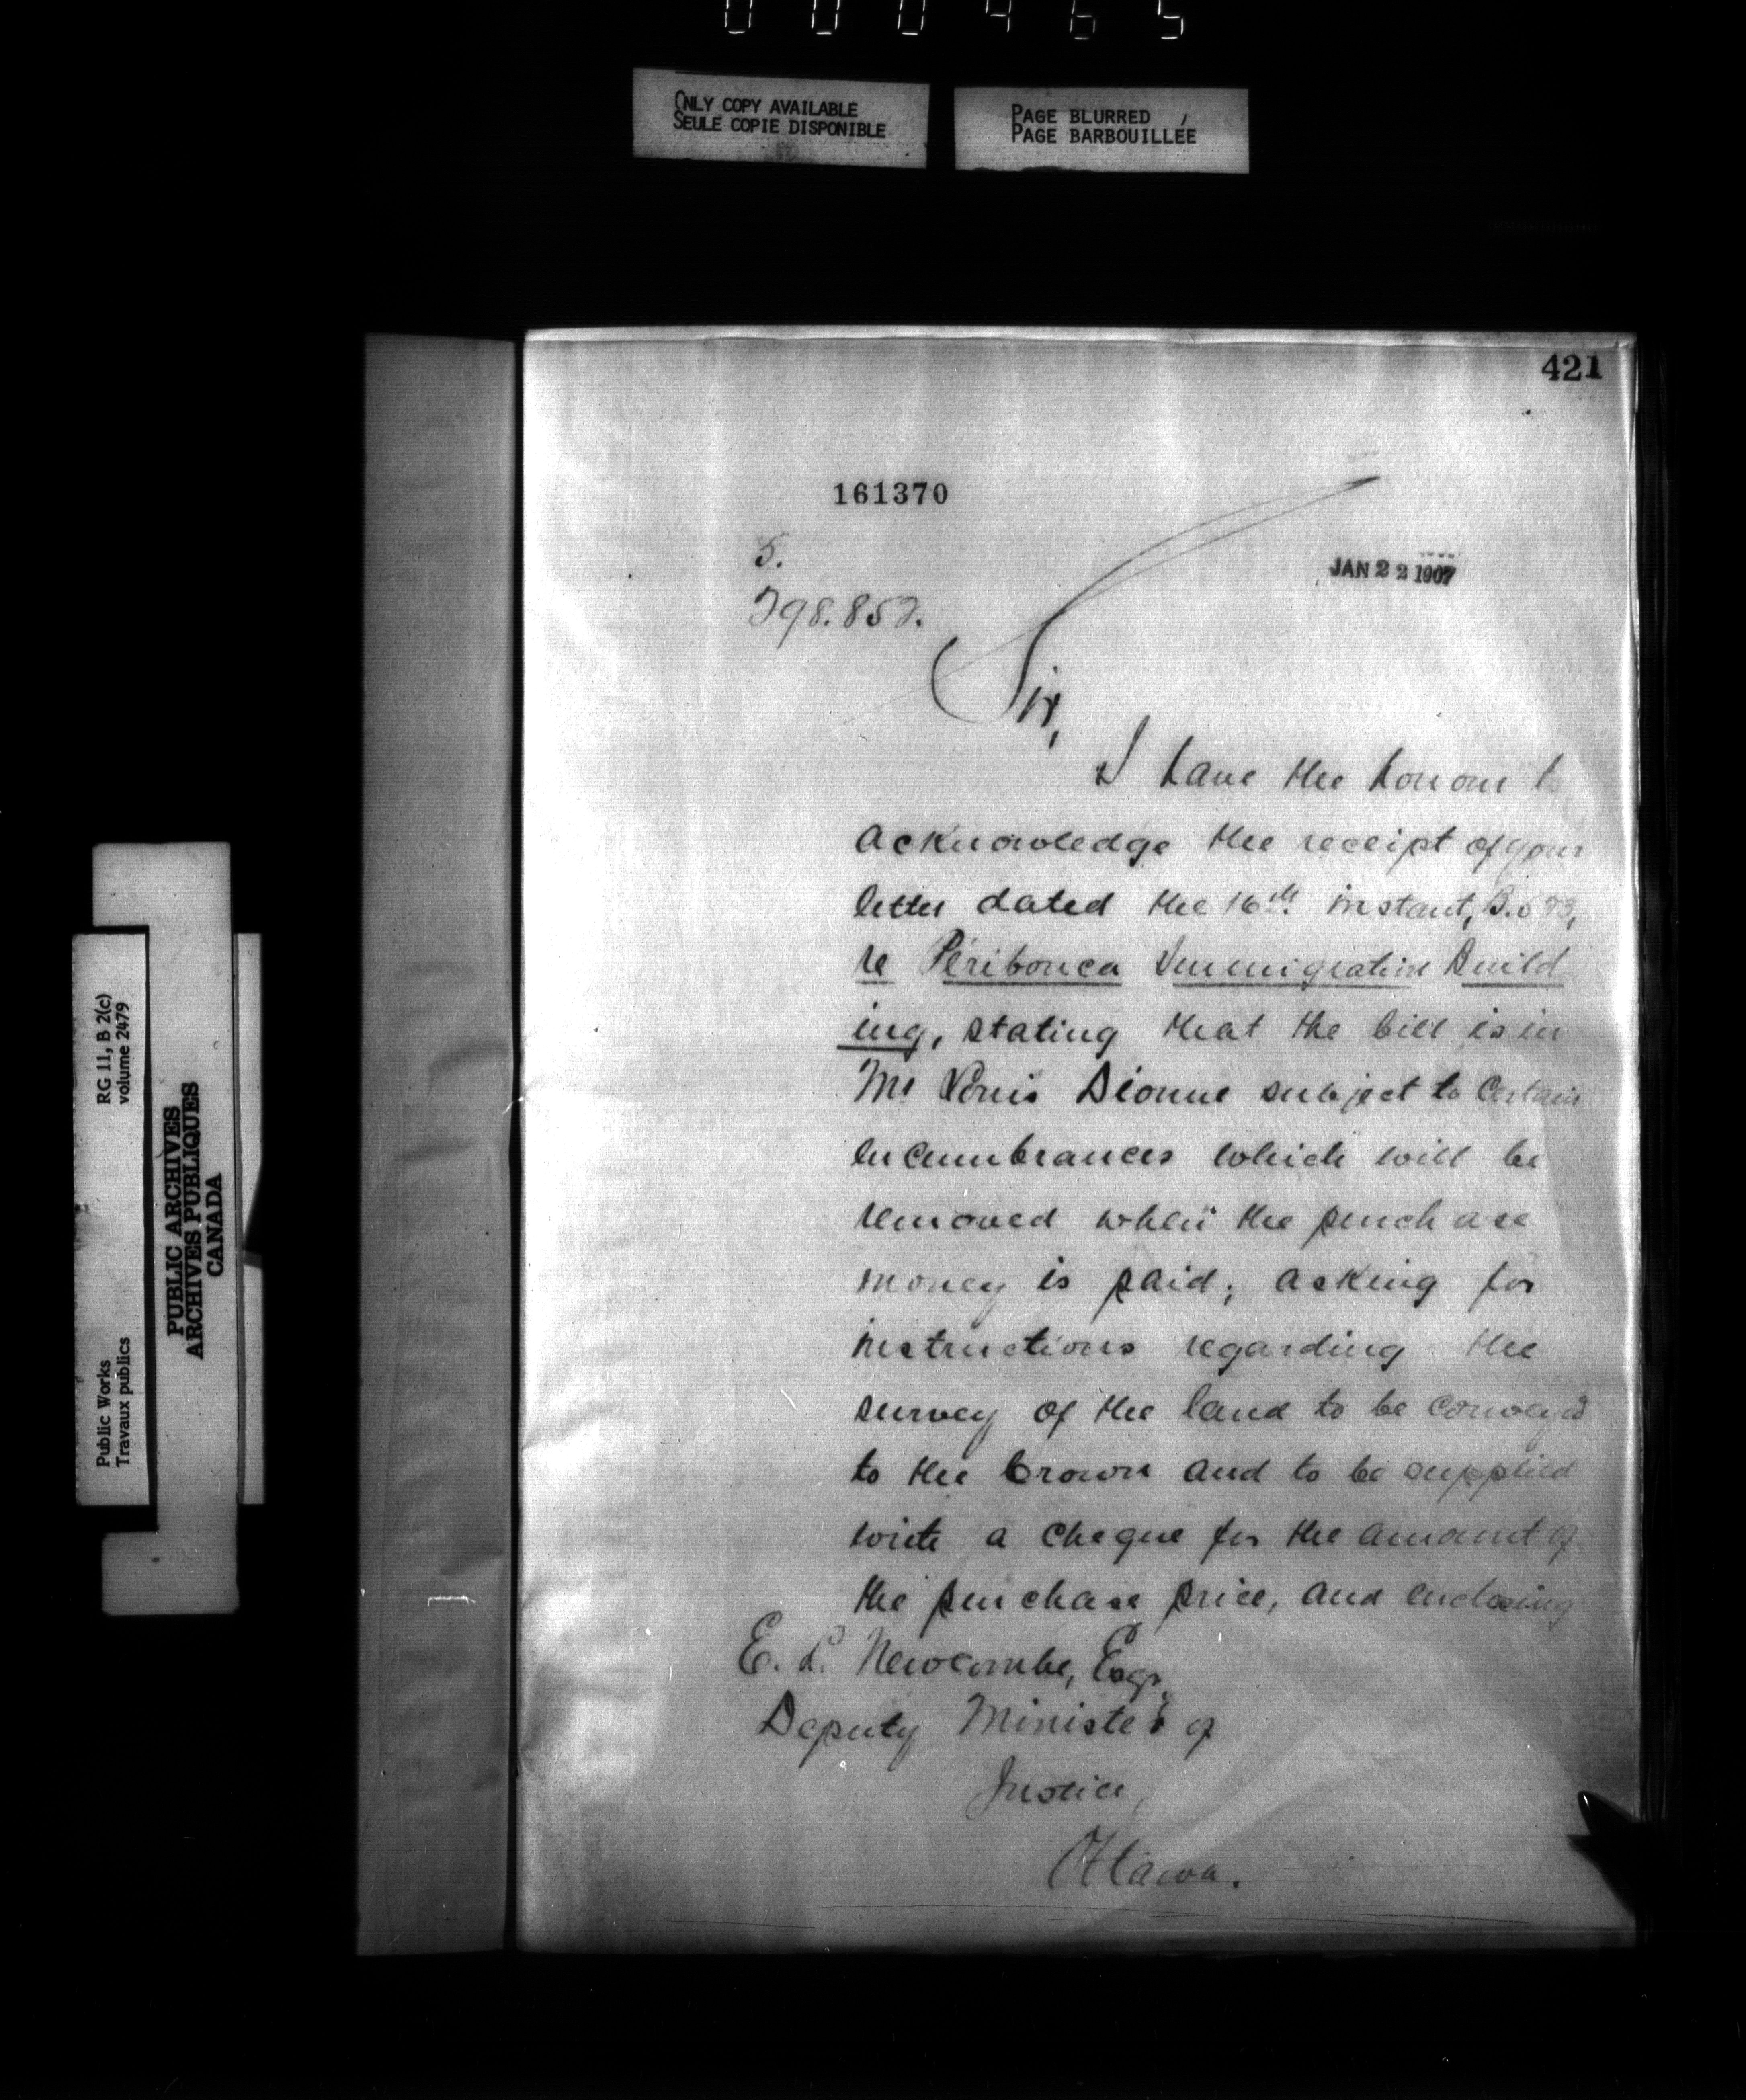 000465
ONLY COPY AVAILABLE
SEULE COPIE DISPONIBLE
PAGE BLURRED
PAGE BARBOUILLÉE
421
161370
JAN 22 1907
5.
398.852.
Sir,
I have the honour to
acknowledge the receipt of your
letter dated the 16th instant,
re Péribonca Immigration Build
ing, stating that the bill is in
Mr Louis Dionne subject to certain
incumbrances which will be
removed when the purchase
money is paid; asking for
instructions regarding the
survey of the land to be conveyed
to the Crown and to be supplied
with a cheque for the amount of
the purchase price, and enclosing
E. L. Newcombe, Esqr.
Deputy Minister of
Justice,
Ottawa.
RG 11, B 2(c)
volume 2479
Public Works
Travaux publics
PUBLIC ARCHIVES
ARCHIVES PUBLIQUES
CANADA